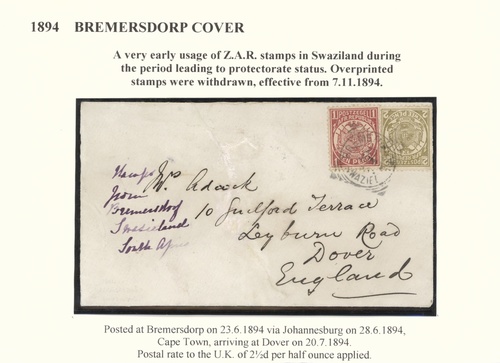 1894 BREMERSDORP COVER
A very early usage of Z.A.R. stamps in Swaziland during
the period leading to protectorate status. Overprinted
stamps were withdrawn, effective from 7.11.1894.
Mrs Adcock
10 Guilford Terrace
Leyburn Road
Dover
England
Stamps
from
Bremersdorf
Swasieland
South Africa
Posted at Bremersdorp on 23.6.1894 via Johannesburg on 28.6.1894,
Cape Town, arriving at Dover on 20.7.1894.
Postal rate to the U.K. of 2½d per half ounce applied.